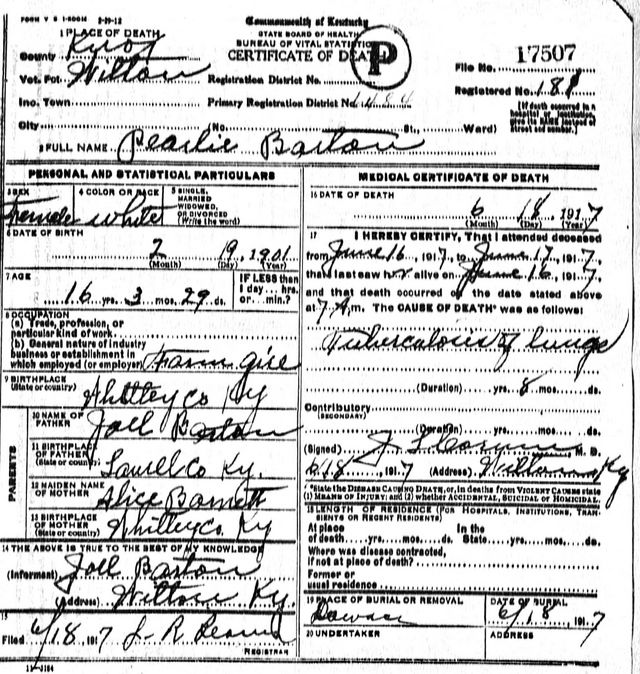 FORM V S 1-500M 8-19-12
Commonwealth of Kentucky
STATE BOARD OF HEALTH
BUREAU OF VITAL STATISTICS
CERTIFICATE OF DEATH
P
File No. 17507
Registered No. 181
[If death occurred in a hospital or institution, give its NAME instead of street and number.]
1 PLACE OF DEATH
County Knox
Vot. Pct. Wilton Registration District No.
Inc. Town Primary Registration District No. 1484
City (No. St., Ward)
2 FULL NAME Pearlie Barton
PERSONAL AND STATISTICAL PARTICULARS
3 SEX Female
4 COLOR OR RACE white
5 SINGLE, MARRIED WIDOWED, OR DIVORCED (Write the word)
6 DATE OF BIRTH
2 19, 1901
(Month) (Day) (Year)
7 AGE
16 yrs. 3 mos. 29 ds.
IF LESS than 1 day... hrs. or... min.?
8 OCCUPATION
(a) Trade, profession, or particular kind of work
(b) General nature of industry
business or establishment in
which employed (or employer) Farm girl
9 BIRTHPLACE
(State or country) Whitley Co Ky
PARENTS
10 NAME OF FATHER Joel Barton
11 BIRTHPLACE OF FATHER (State or country) Laurel Co Ky.
12 MAIDEN NAME OF MOTHER Alice Barnett
13 BIRTHPLACE OF MOTHER (State or country) Whitley Co. Ky
14 THE ABOVE IS TRUE TO THE BEST OF MY KNOWLEDGE
(Informant) Joel Barton
(Address) Wilton Ky.
15
Filed 6/18 1917 J-R
REGISTRAR
11-3184
MEDICAL CERTIFICATE OF DEATH
16 DATE OF DEATH
6 18, 1917
(Month) (Day) (Year)
17 I HEREBY CERTIFY, That I attended deceased
from June 16, 1917, to June 17, 1917,
that I last saw her alive on June 16, 1917,
and that death occurred on the date stated above
at 7 A m. The CAUSE OF DEATH* was as follows:
Tuberculosis of lungs
(Duration) yrs. 8 mos. ds.
Contributory
(SECONDARY)
(Duration) yrs. mos. ds.
(Signed) M. D.
6/18, 1917 (Address) Wilton Ky
*State the DISEASE CAUSING DEATH, or, in deaths from VIOLENT CAUSES state
(1) MEANS OF INJURY; and (2) whether ACCIDENTAL, SUICIDAL or HOMICIDAL.
18 LENGTH OF RESIDENCE (FOR HOSPITALS, INSTITUTIONS, TRANSIENTS OR RECENT RESIDENTS)
At place of death yrs. mos. ds. In the State yrs. mos. ds.
Where was disease contracted,
if not at place of death?
Former or
usual residence
19 PLACE OF BURIAL OR REMOVAL
DATE OF BURIAL
6/18, 1917
20 UNDERTAKER
ADDRESS